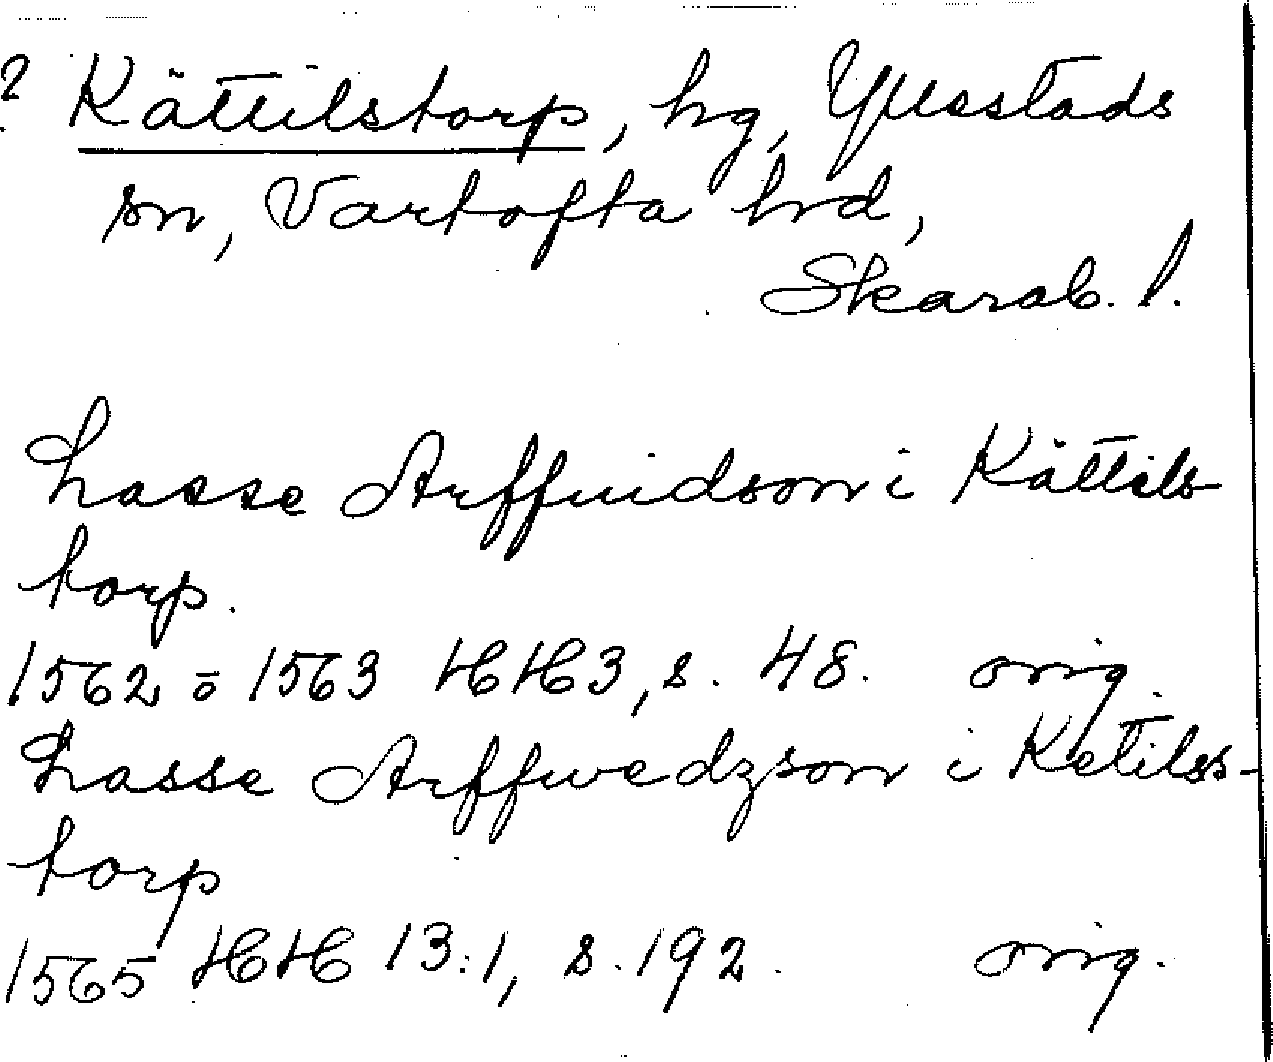 ? Kättilstorp, hg, Yllestads
sn, Vartofta hd,
Skarab. l.
Lasse Arffuidson i Kättils
torp.
1562 ō 1563 HH3, s. 48. orig.
Lasse Arffwedzson i Ketilss-
torp
1565 HH 13:1, s. 192. orig.